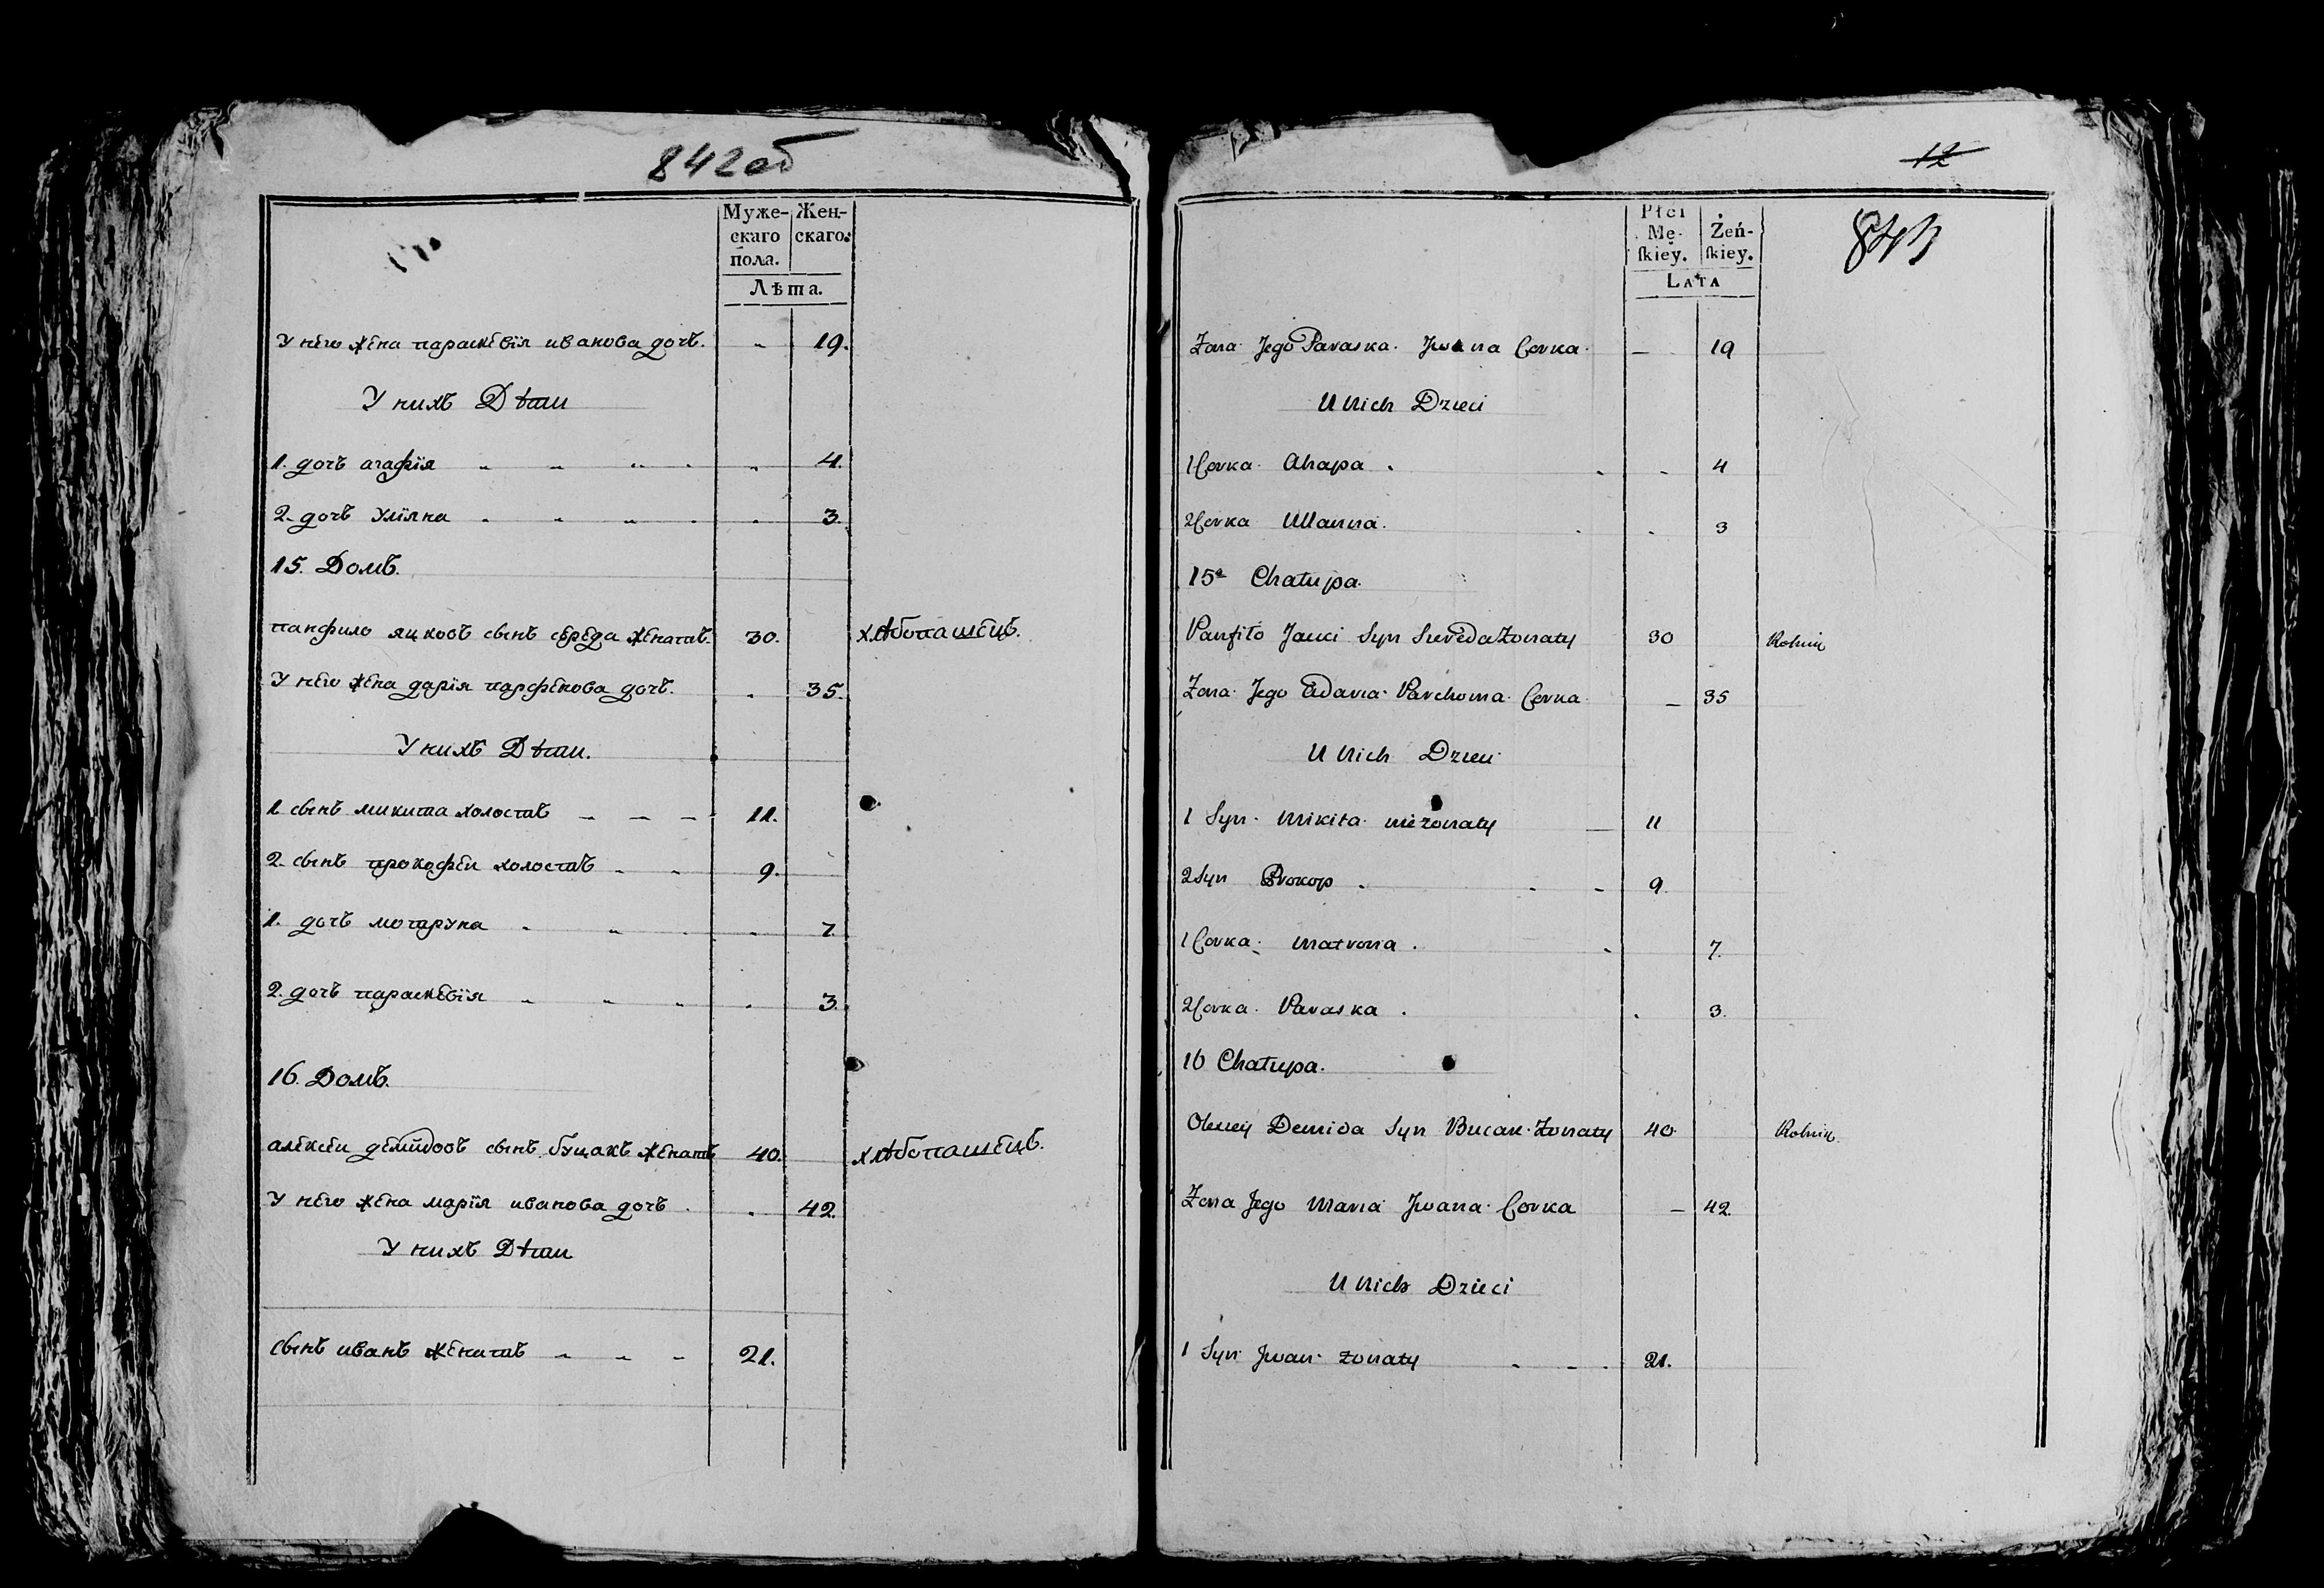 842 об
Муже- Жен-
скаго скаго.
пола.
Лѣта.
У него жена параскевія иванова дочь. 19.
У нихъ Дѣти
1. дочь агафія 4.
2. дочь Уліяна 3.
15. Домъ.
панфило яцковъ сынъ середа женатъ. 30. хлѣбопашецъ.
У него жена дарія парфенова дочь. 35.
У нихъ Дѣти.
1. сынъ микита холостъ 11.
2. сынъ прокофеи холостъ 9.
1. дочь мотаруна 7.
2. дочь параскевія 3.
16. Домъ.
алексеи демидовъ сынъ буцакъ женатъ 40. хлѣбопашецъ.
У него жена марія иванова дочь 42.
У нихъ Дѣти
сынъ иванъ женатъ 21.
12
843
Płci
Mę- Żeń-
ſkiey. ſkiey.
LATA
Żona Jego Paraska Jwana Corka 19
U Nich Dzieci
1 Corka Ahapa 4
2 Corka Ulanna 3
15a Chałupa
Panfiło Jacki Syn Sereda Żonaty 30 Rolnik
Żona Jego Parchoma Corka 35
U Nich Dzieci
1 Syn Mikita nieżonaty 11
2 Syn Prokop 9
1 Corka Matrona 7.
2 Corka Paraska 3.
16 Chałupa.
Demida Syn Bucak Żonaty 40 Rolnik
Żona Jego Maria Jwana Corka 42
U Nich Dzieci
1 Syn Jwan żonaty 21.